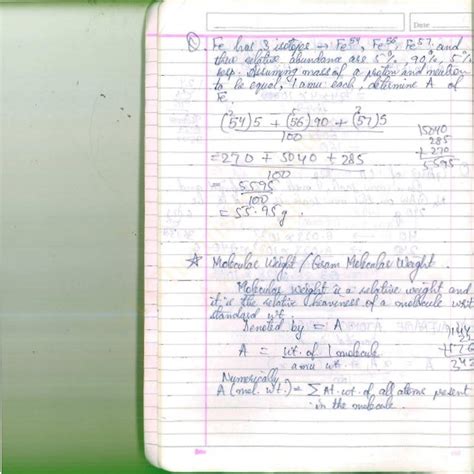 Date
Q. Fe has 3 isotopes → Fe54, Fe56, Fe57 and
their relative abundance are 5%, 90%, 5%
resp. Assuming mass of a proton and neutron
to be equal, 1 amu each, determine A of
Fe.
(54)5 + (56)90 + (57)5
100
15040
285
+270
5595
= 270 + 5040 + 285
100
= 5595
100
= 55.95g.
☆ Molecular Weight / Gram Molecular Weight.
Molecular weight is a relative weight and
it is the relative heaviness of a molecule wrt
standard wt.
Denoted by = A
A = wt. of 1 molecule
amu wt.
Numerically
A (mol. wt.) = Σ At. wt. of all atoms present
in the molecule.
342